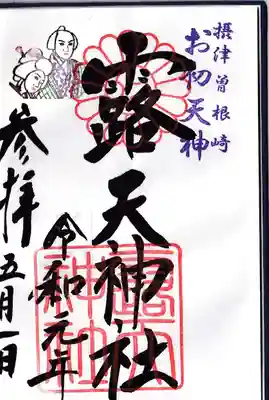 摂津曽根崎
お初天神
露天神社
令和元年
五月一日
参拝
露天
神社